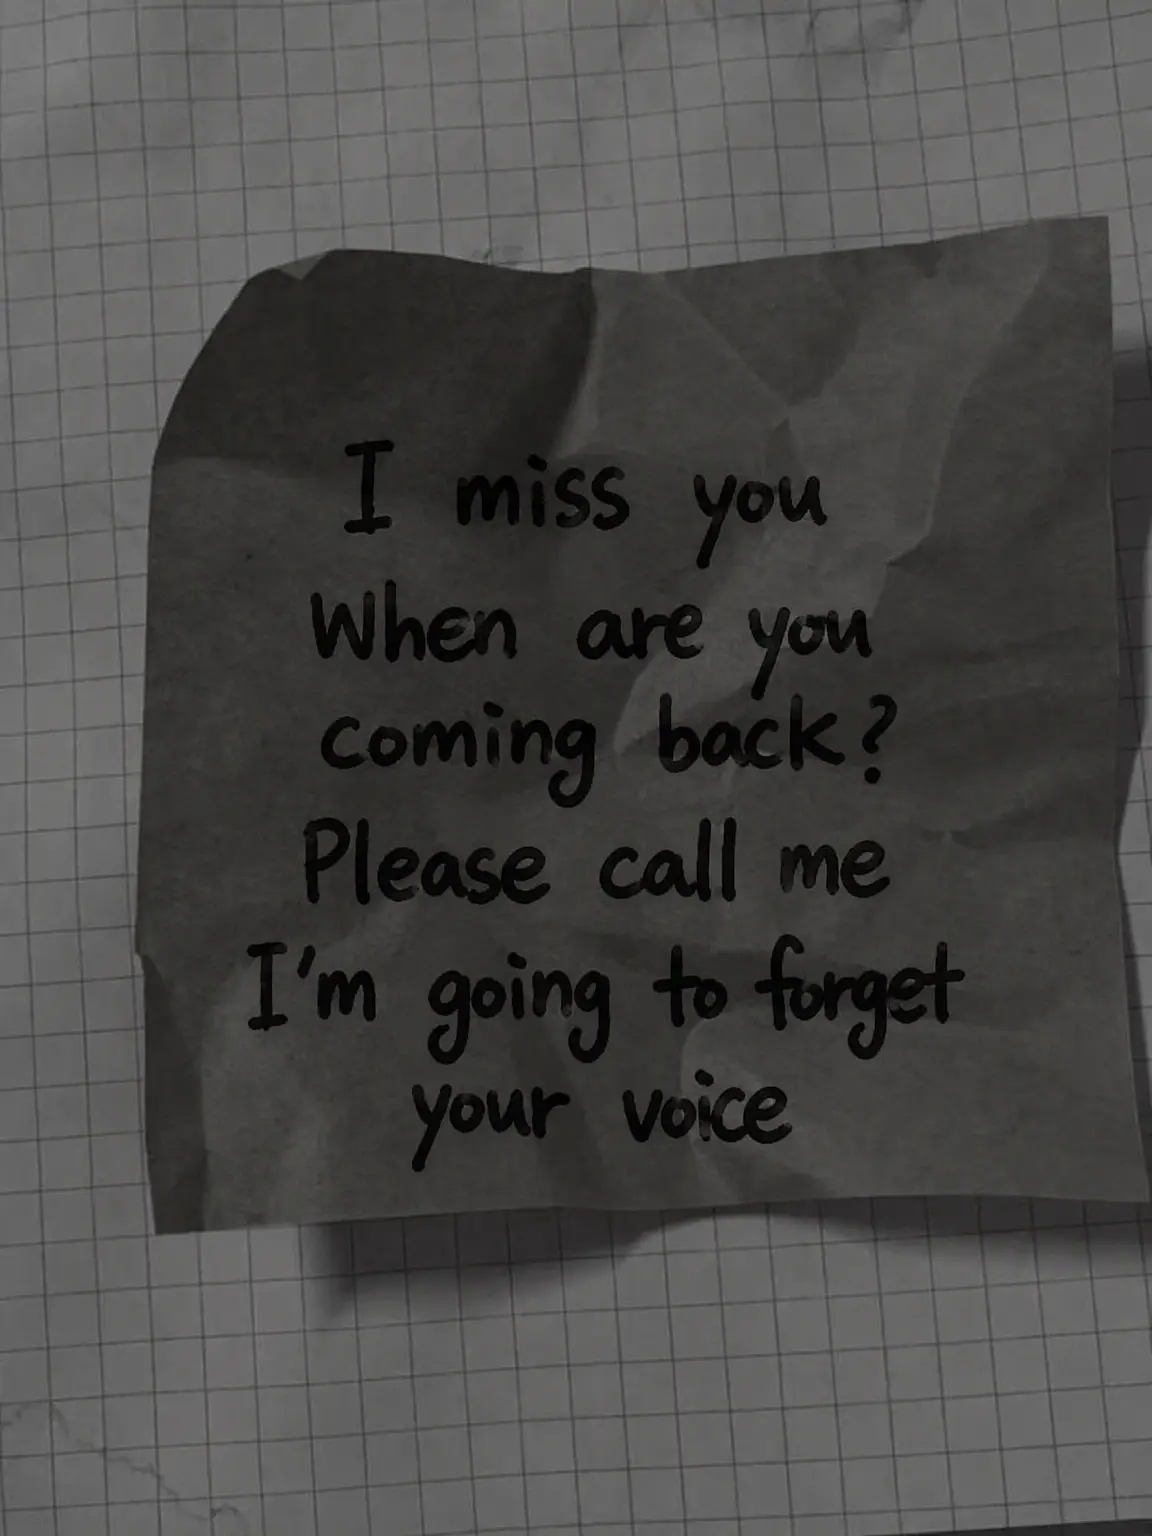 I miss you
When are you
coming back?
Please call me
I'm going to forget
your voice